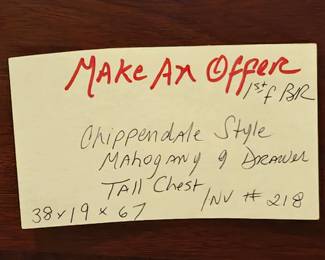 Make An Offer
1st f BR
Chippendale Style
Mahogany 9 Drawer
Tall Chest
INV # 218
38 x 19 x 67